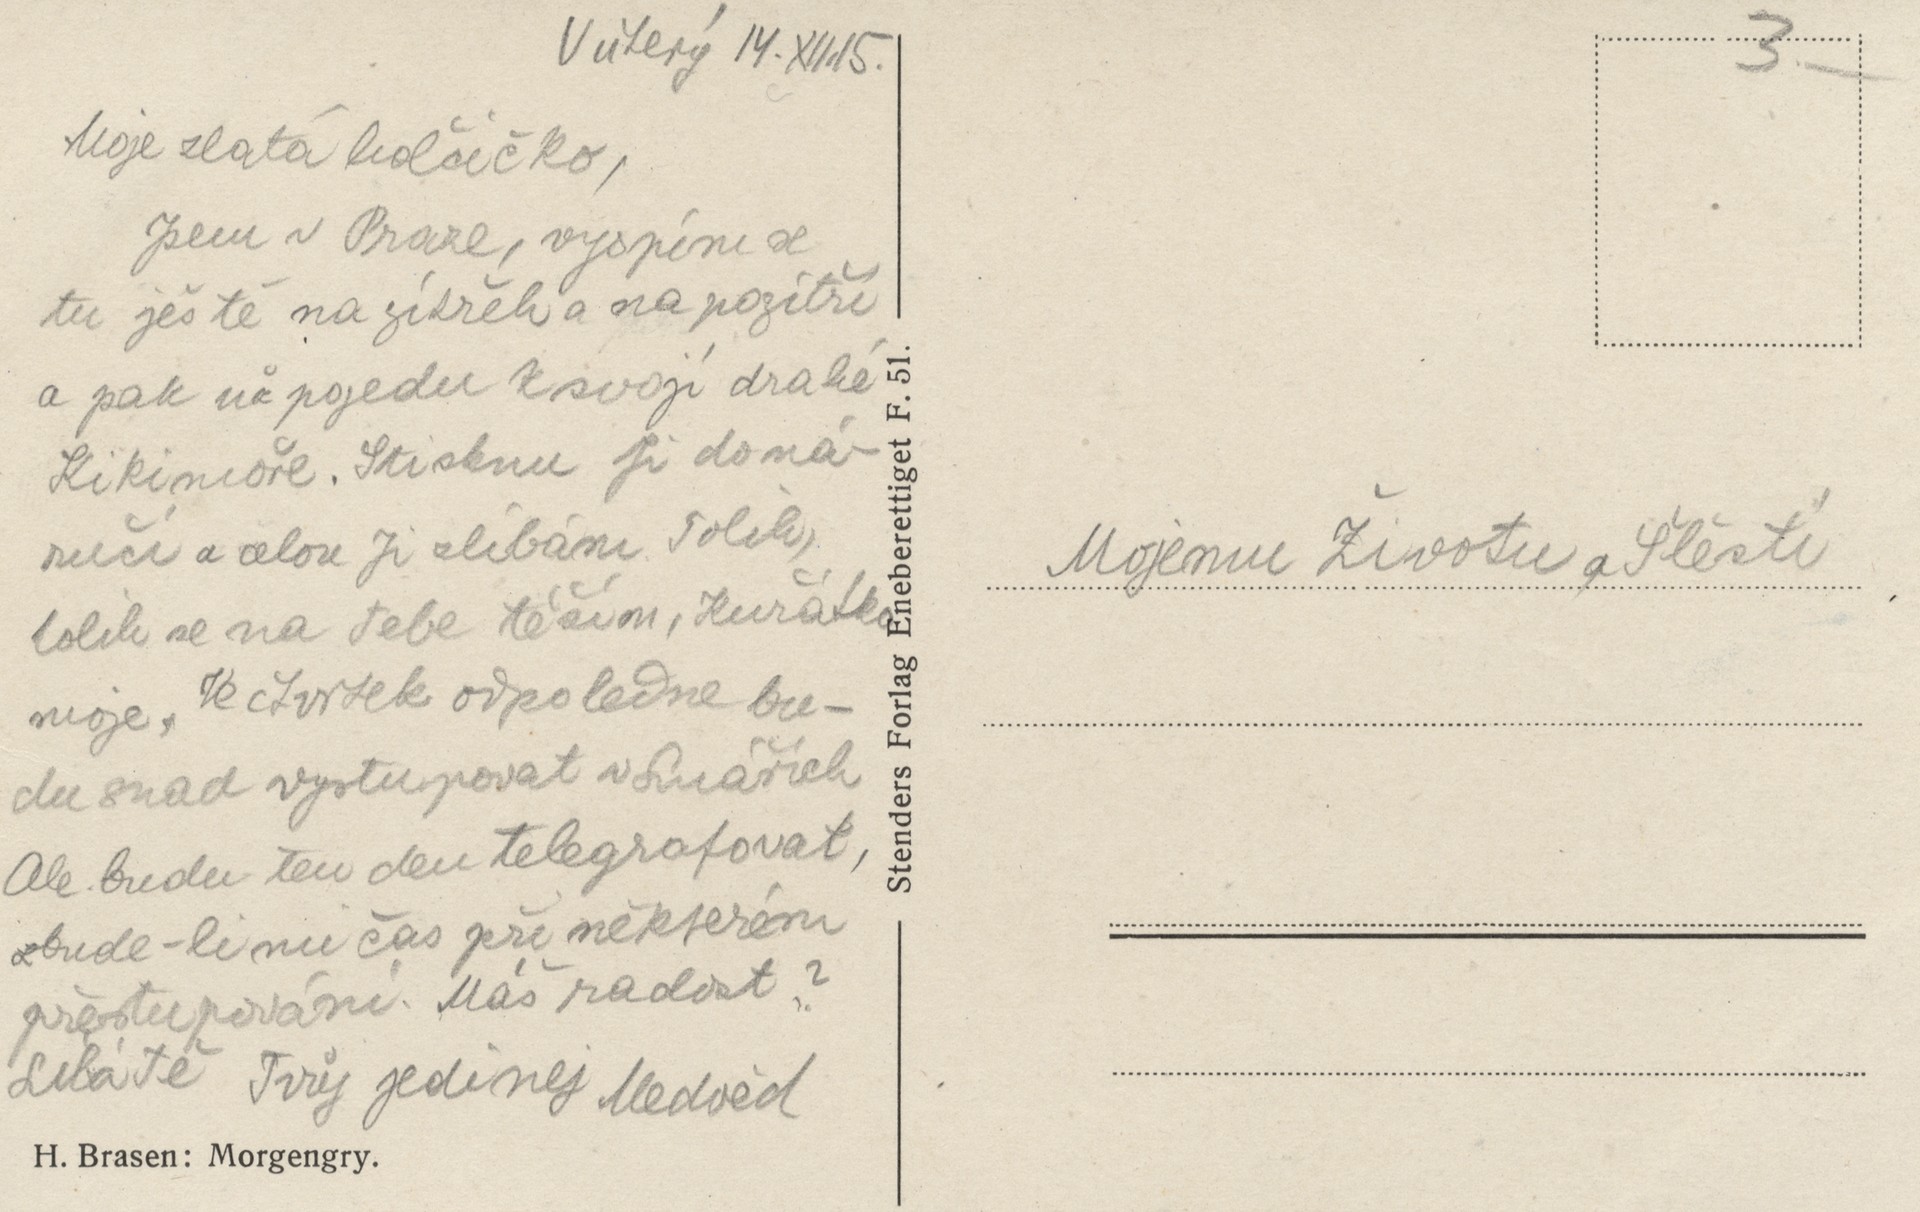 V úterý 14.XII.15.
Moje zlatá holčičko,
Jsem v Praze, vyspím se
tu ještě na zítřek a na pozítří
a pak už pojedu k svojí drahé
Kikimoře. Stisknu Ji do ná-
ručí a celou Ji zlíbám. Tolik,
tolik se na Tebe těším, Kuřátko
moje. Ve čtvrtek odpoledne bu-
du snad vystupovat v
Ale budu ten den telegrafovat,
zbude-li mi čas při některém
přestupování. Máš radost?
Líbá Tě Tvůj jedinej Medvěd
H. Brasen: Morgengry.
Stenders Forlag Eneberettiget F. 51.
3.—
Mojemu Životu a Štěstí